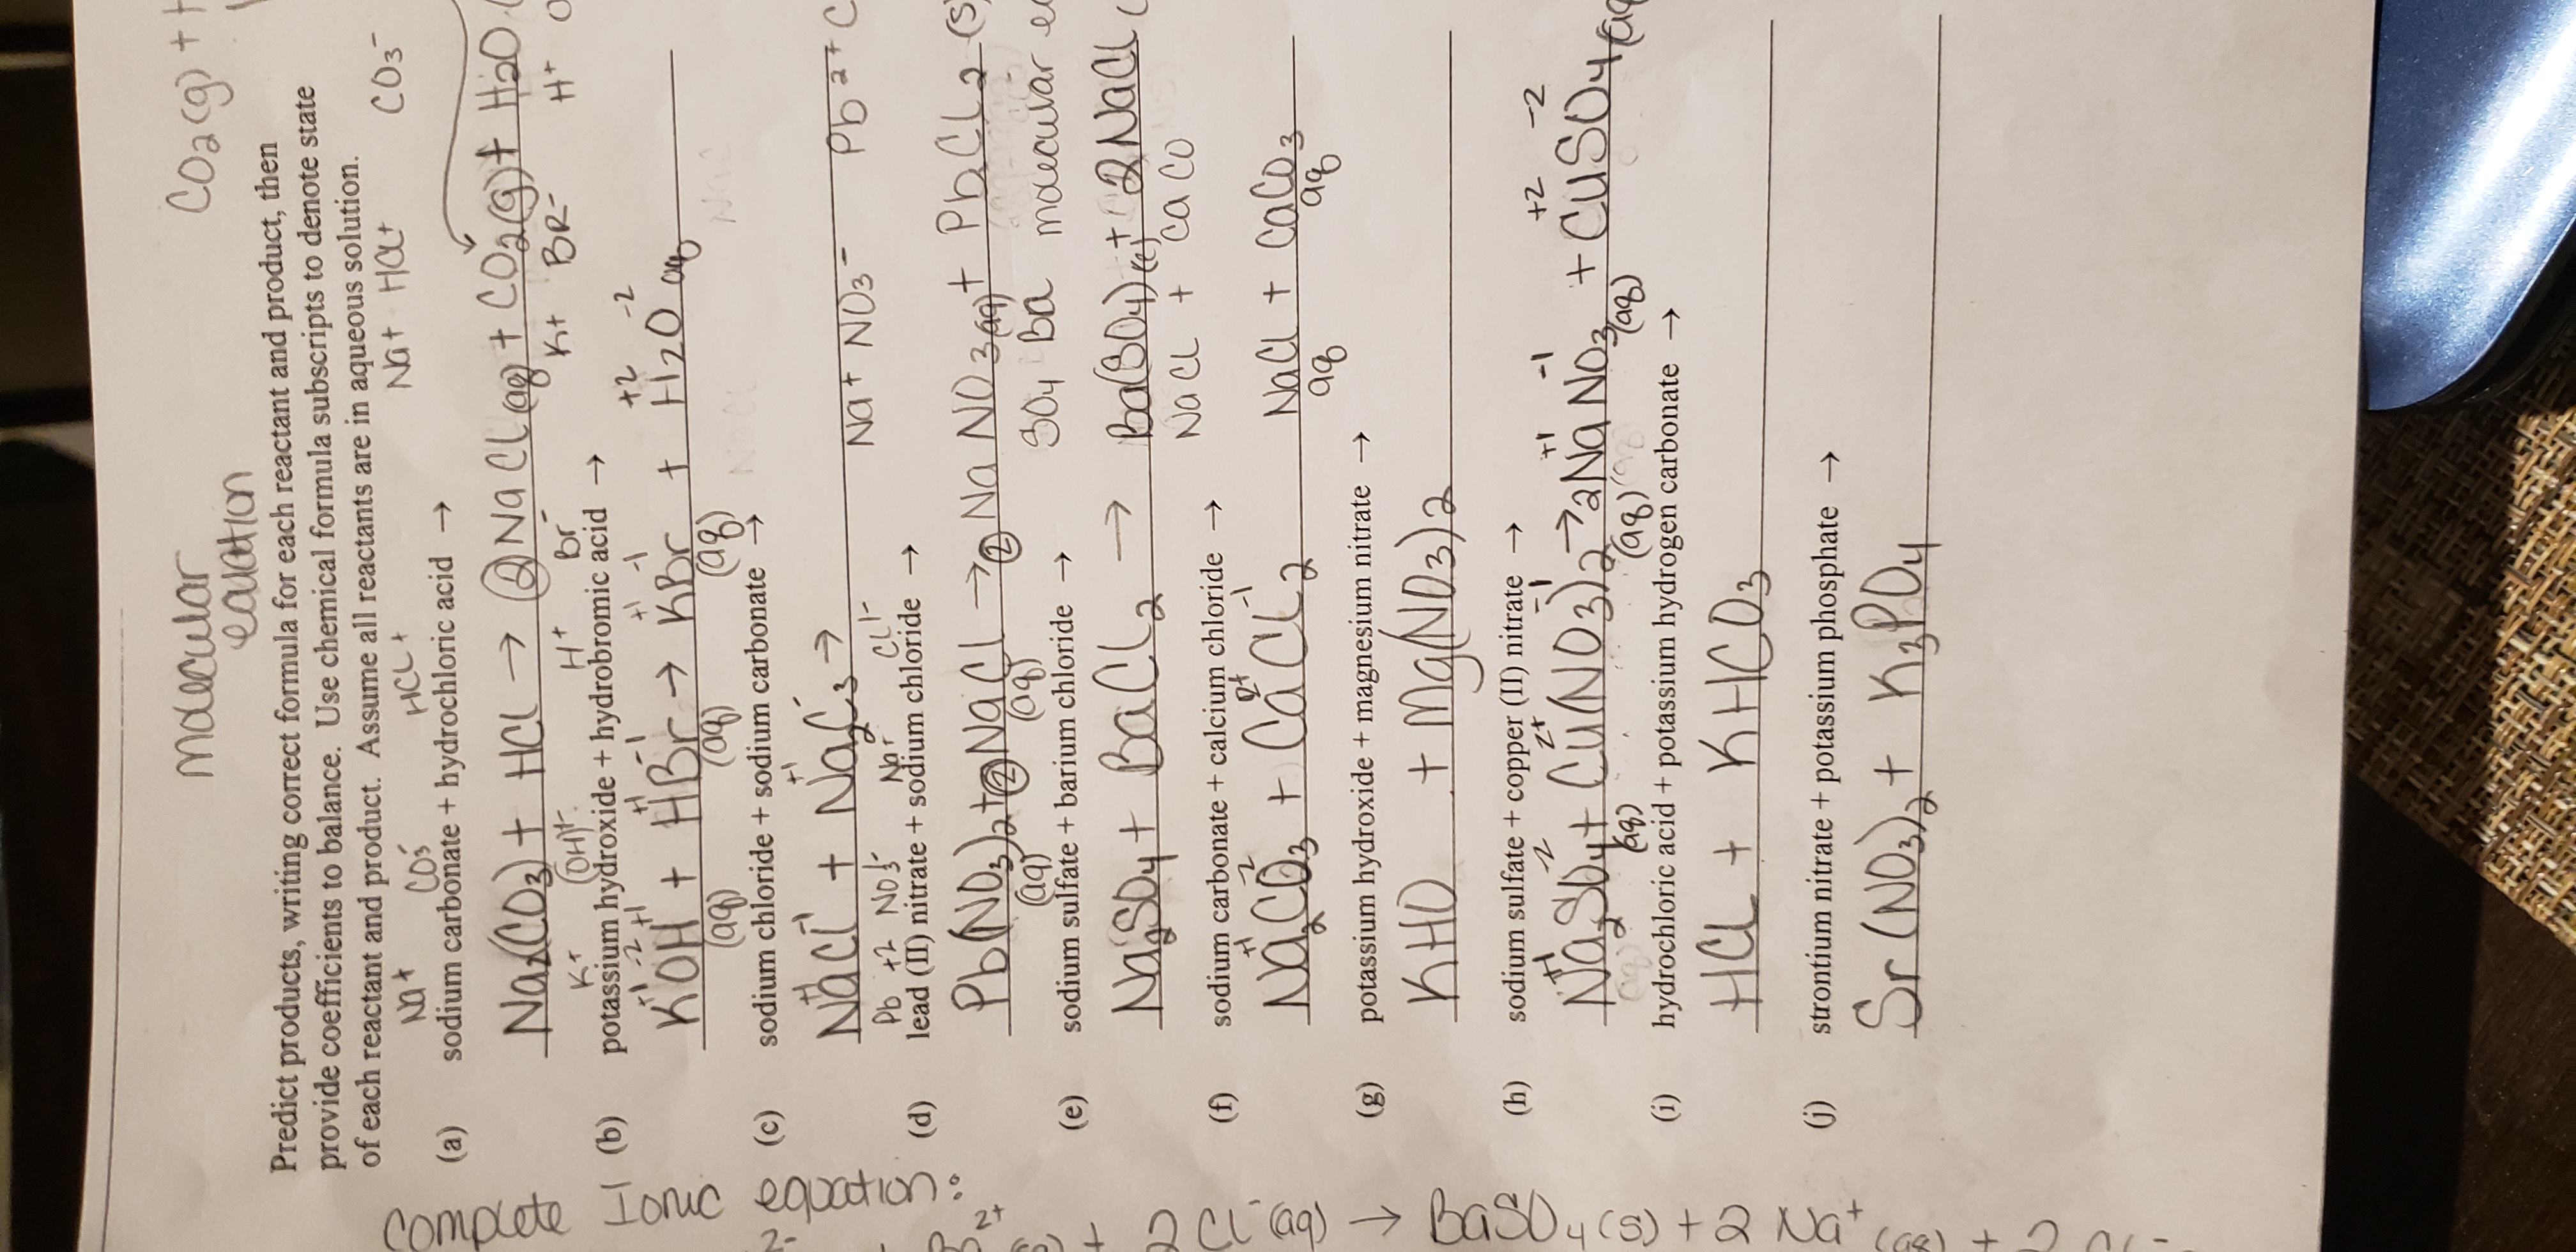 molecular
equation
CO2(g) +
Predict products, writing correct formula for each reactant and product, then
provide coefficients to balance. Use chemical formula subscripts to denote state
of each reactant and product. Assume all reactants are in aqueous solution.
Na+ CO3- HCL+ Na+ HCl+ CO3-
(a) sodium carbonate + hydrochloric acid →
Na2(CO3) + HCl → ②NaCl(aq) + CO2(g) + H2O
K+ (OH)+- H+ Br- K+ BR- H+
(b) potassium hydroxide + hydrobromic acid →
+1 -2 +1 +1 -1 +1 -1 +2 -2
KOH + HBr → KBr + H2O aq
(aq) (aq) (aq)
(c) sodium chloride + sodium carbonate →
+1 -1 +1 -
NaCl + Na2C3 →
Na+ NO3- Pb2+ C
Pb +2 NO3- Na+ CL1-
(d) lead (II) nitrate + sodium chloride →
Pb(NO3)2 + ②NaCl → ②NaNO3(aq) + PbCl2 (s
(aq) (aq)
SO4 Ba molecular
(e) sodium sulfate + barium chloride →
Na2SO4 + BaCl2 → Ba(SO4) + 2NaCl
NaCl + CaCO
(f) sodium carbonate + calcium chloride →
+1 -2 2+ -1
Na2CO3 + CaCl2 NaCl + CaCO3
aq aq
(g) potassium hydroxide + magnesium nitrate →
KHO + Mg(NO3)2
(h) sodium sulfate + copper (II) nitrate →
+1 -2 2+ -1 +1 -1 +2 -2
Na2SO4 + Cu(NO3)2 → 2NaNO3 + CuSO4
(aq) (aq) (aq) (aq
(i) hydrochloric acid + potassium hydrogen carbonate →
HCl + KHCO3
(j) strontium nitrate + potassium phosphate →
Sr(NO3)2 + K3PO4
Complete Ionic equation:
2+ (aq) + 2Cl-(aq) → BaSO4(s) + 2Na+(aq) + 2Cl-